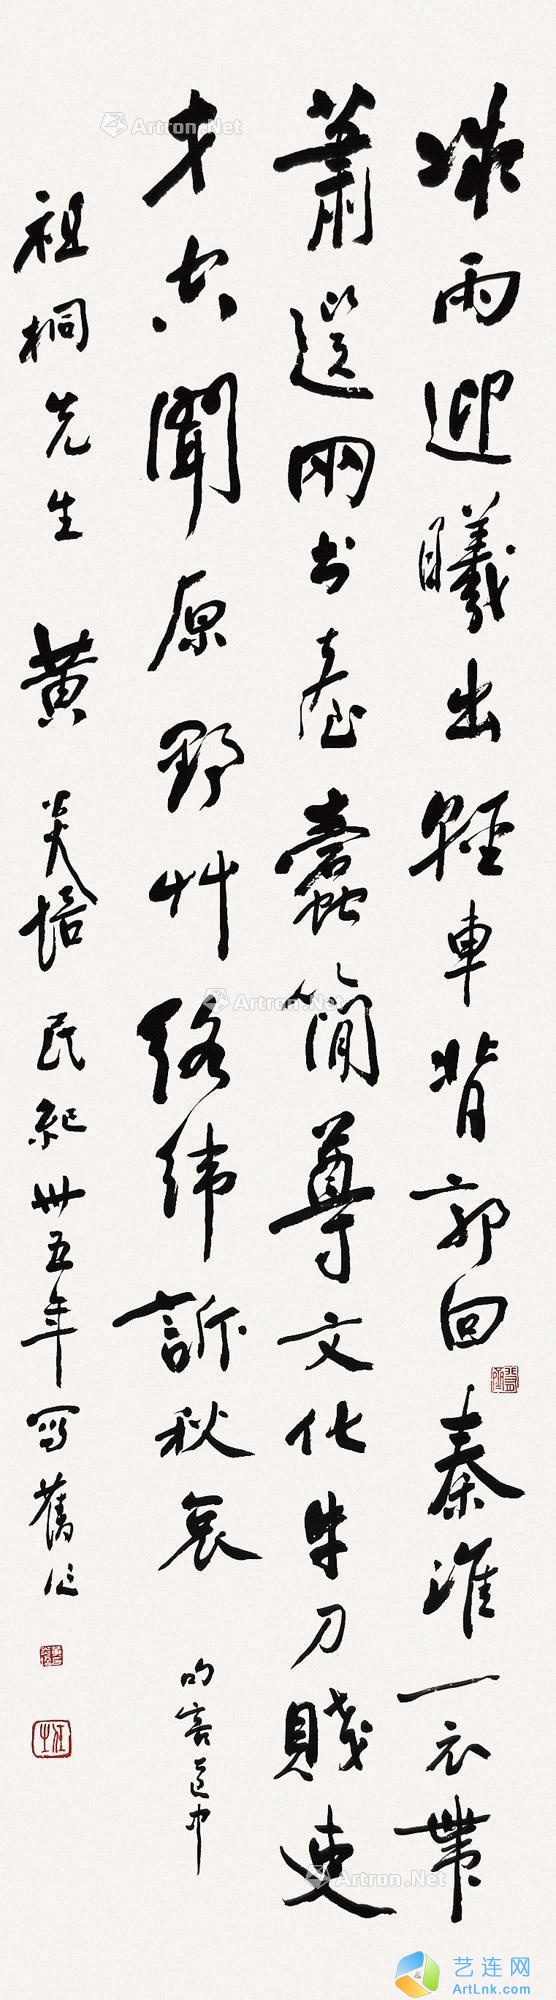 雨迎曦出輕車背郭回秦淮一衣帶
蕭選兩书臺蠹簡尊文化牛刀賤吏
才空聞原野艸絡緯訴秋哀 句容道中
祖桐先生 黄炎培 民紀卅五年寫舊作
Artron.Net
Artron.Net
Artron.Net
艺连网
ArtLnk.com